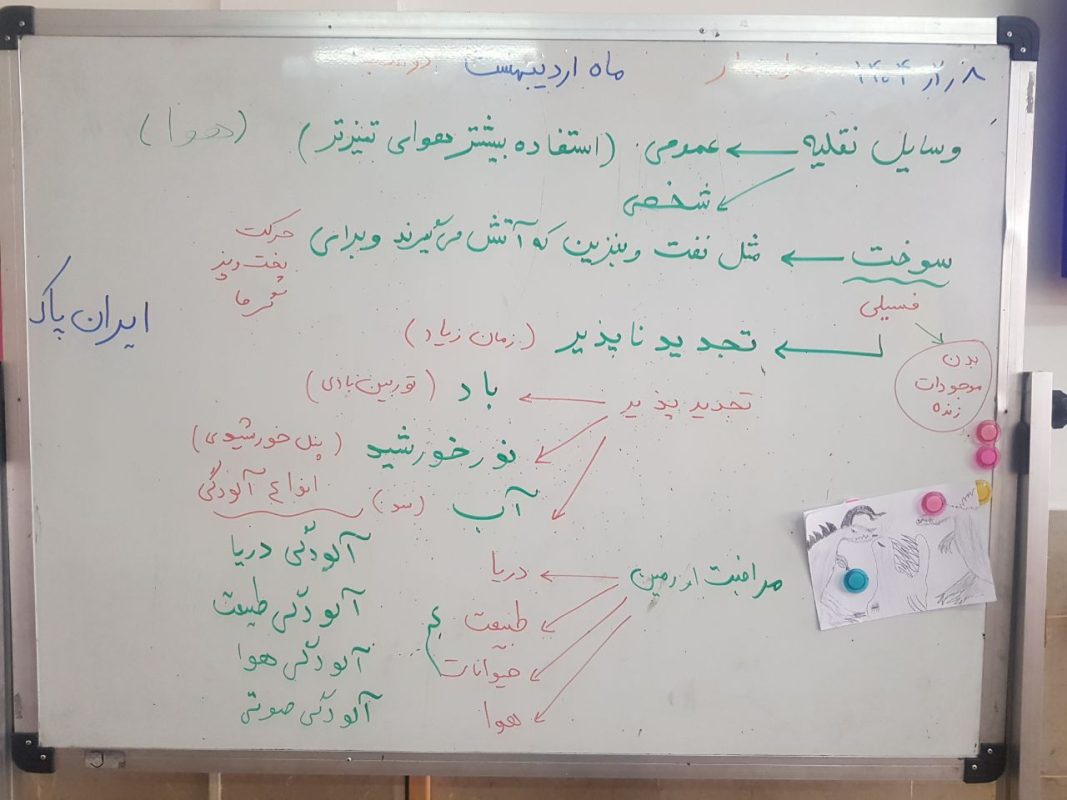 ماه اردیبهشت
وسایل نقلیه ← عمومی. (استفاده بیشتر هوای تمیزتر) (هوا)
شخصی
سوخت ← مثل نفت و بنزین که آتش می‌گیرند و برای حرکت
پخت و پز
گرما
فسیلی
بدن موجودات زنده
ایران پاک
تجدید ناپذیر (زمان زیاد)
تجدید پذیر ← باد (توربین بادی)
نور خورشید (پنل خورشیدی)
آب (سد)
انواع آلودگی
آلودگی دریا
آلودگی طبیعت
آلودگی هوا
آلودگی صوتی
مراقبت از زمین ← دریا
طبیعت
حیوانات
هوا